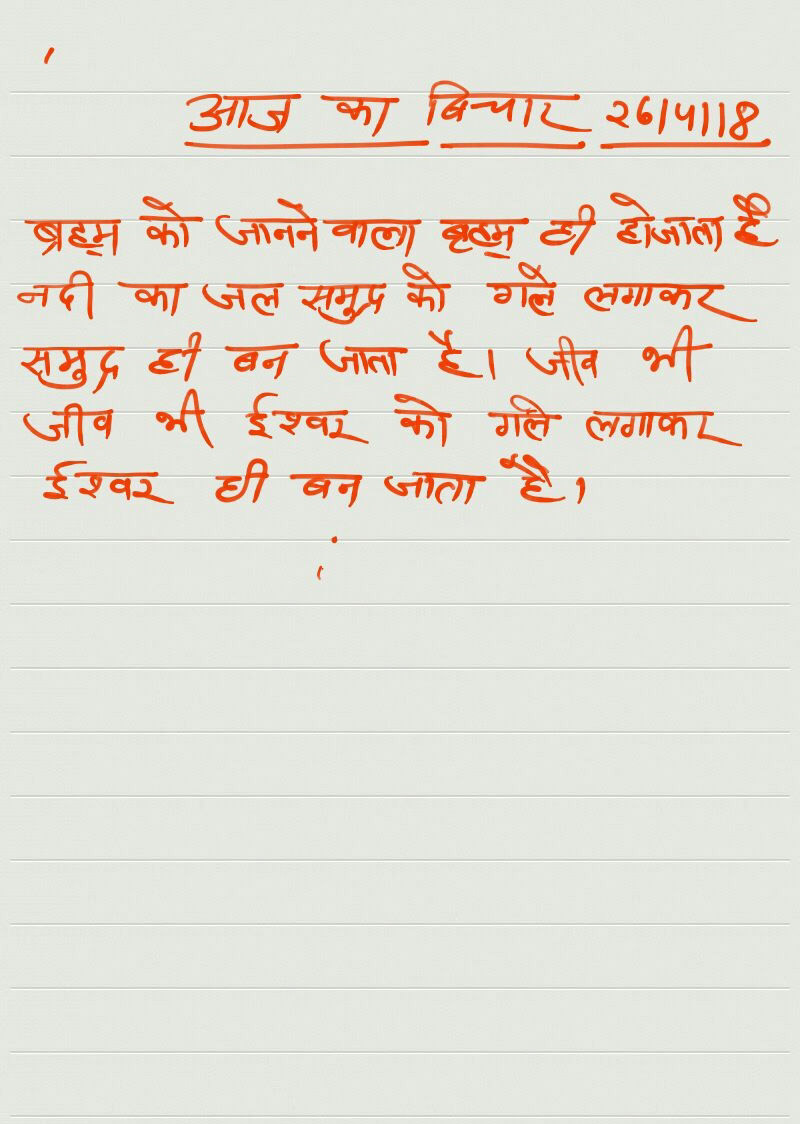 आज का बिचार २6/५/18
ब्रहम् को जानने वाला बृहम् ही होजाता है
नदी का जल समुद्र को गले लगाकर
समुद्र ही बन जाता है। जीव भी
जीव भी ईश्वर को गले लगाकर
ईश्वर ही बन जाता है।